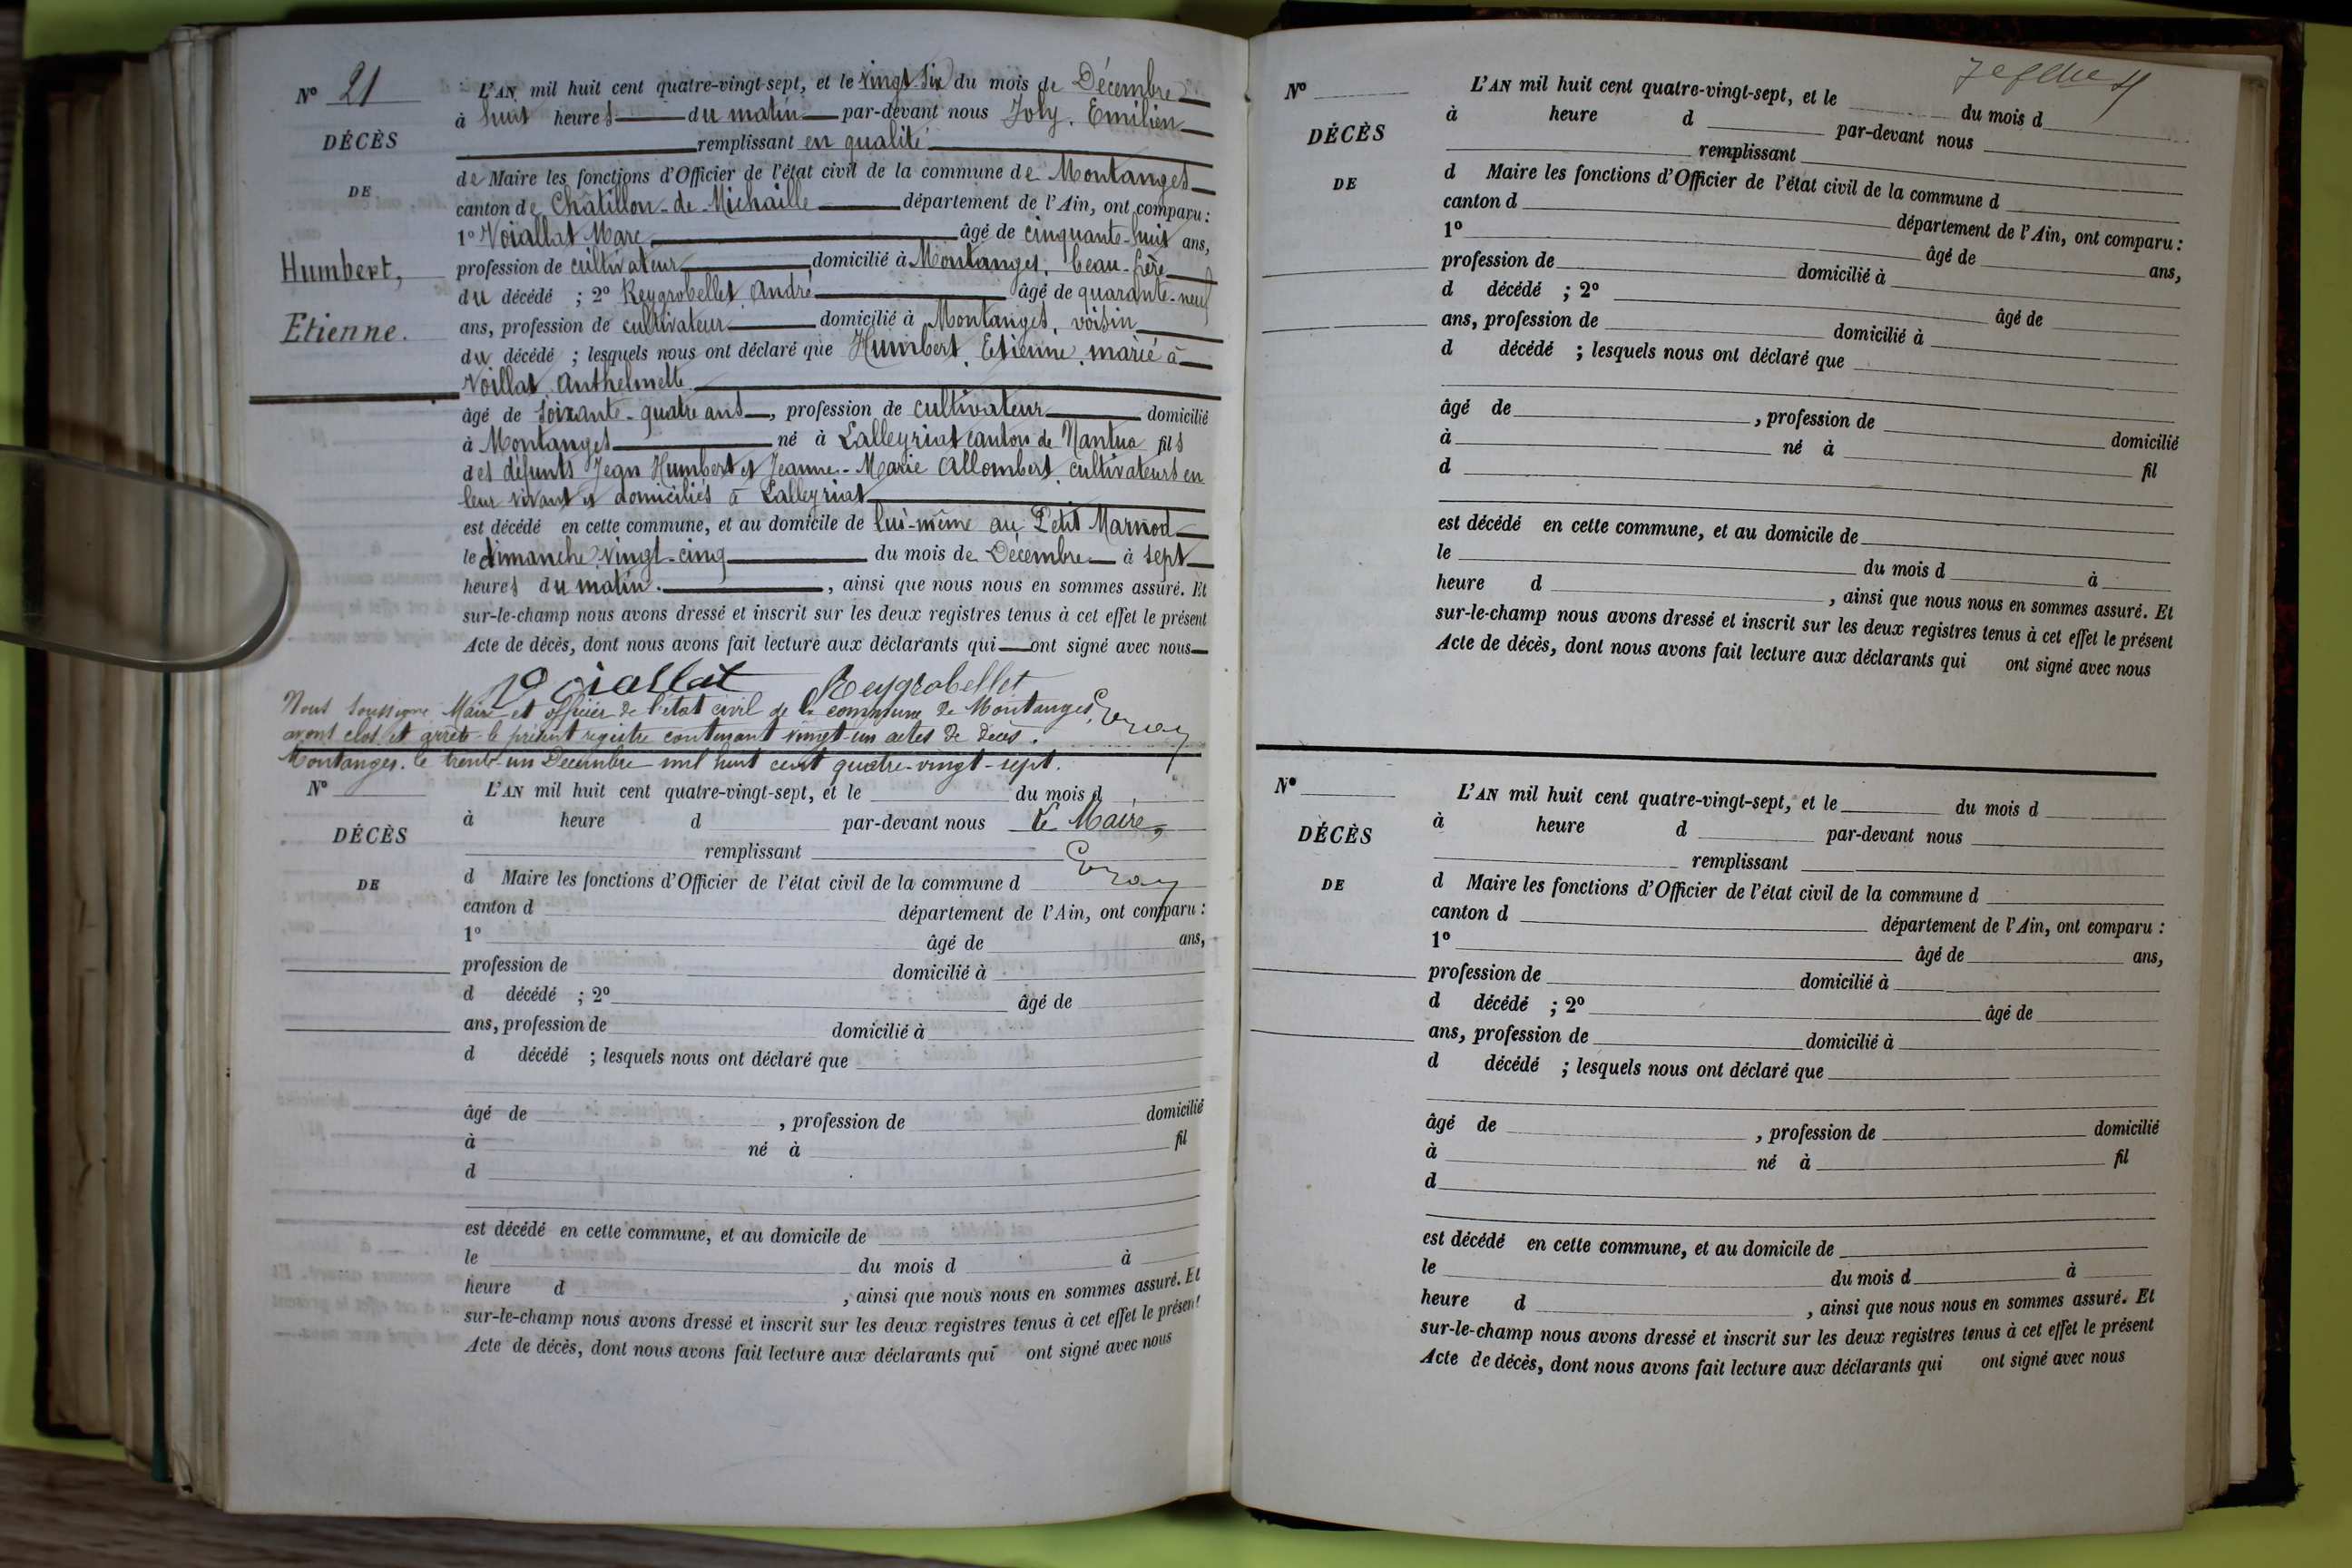 N° 21
DÉCÈS
DE
Humbert,
Etienne.
L'AN mil huit cent quatre-vingt-sept, et le vingt six du mois de Décembre
à huit heures du matin par-devant nous Joly. Emilien
remplissant en qualité
de Maire les fonctions d'Officier de l'état civil de la commune de Montanges
canton de Châtillon-de-Michaille département de l'Ain, ont comparu :
1° Voiallat Marc âgé de cinquante-huit ans,
profession de cultivateur domicilié à Montanges, beau-frère
du décédé ; 2° Reygrobellet André âgé de quarante-neuf
ans, profession de cultivateur domicilié à Montanges, voisin
du décédé ; lesquels nous ont déclaré que Humbert, Etienne, marié à
Voillat Anthelmette
âgé de soixante-quatre ans, profession de cultivateur domicilié
à Montanges né à Lalleyriat canton de Nantua fils
des défunts Jean Humbert et Jeanne-Marie Allombert, cultivateurs en
leur vivant et domiciliés à Lalleyriat
est décédé en cette commune, et au domicile de lui-même au Petit Marnod
le dimanche vingt-cinq du mois de Décembre à sept
heures du matin. , ainsi que nous nous en sommes assuré. Et
sur-le-champ nous avons dressé et inscrit sur les deux registres tenus à cet effet le présent
Acte de décès, dont nous avons fait lecture aux déclarants qui ont signé avec nous
Voiallat Reygrobellet
Nous soussigné Maire et officier de l'état civil de la commune de Montanges,
avons clos et arrêté le présent registre contenant vingt-un actes de décès.
Montanges, le trente-un Décembre mil huit cent quatre-vingt-sept.
Le Maire,
N°
DÉCÈS
DE
L'AN mil huit cent quatre-vingt-sept, et le du mois d
à heure d par-devant nous
remplissant
d Maire les fonctions d'Officier de l'état civil de la commune d
canton d département de l'Ain, ont comparu :
1° âgé de ans,
profession de domicilié à
d décédé ; 2° âgé de
ans, profession de domicilié à
d décédé ; lesquels nous ont déclaré que
âgé de , profession de domicilié
à né à fil
d
est décédé en cette commune, et au domicile de
le du mois d à
heure d , ainsi que nous nous en sommes assuré. Et
sur-le-champ nous avons dressé et inscrit sur les deux registres tenus à cet effet le présent
Acte de décès, dont nous avons fait lecture aux déclarants qui ont signé avec nous
N°
DÉCÈS
DE
L'AN mil huit cent quatre-vingt-sept, et le du mois d
à heure d par-devant nous
remplissant
d Maire les fonctions d'Officier de l'état civil de la commune d
canton d département de l'Ain, ont comparu :
1° âgé de ans,
profession de domicilié à
d décédé ; 2° âgé de
ans, profession de domicilié à
d décédé ; lesquels nous ont déclaré que
âgé de , profession de domicilié
à né à fil
d
est décédé en cette commune, et au domicile de
le du mois d à
heure d , ainsi que nous nous en sommes assuré. Et
sur-le-champ nous avons dressé et inscrit sur les deux registres tenus à cet effet le présent
Acte de décès, dont nous avons fait lecture aux déclarants qui ont signé avec nous
N°
DÉCÈS
DE
L'AN mil huit cent quatre-vingt-sept, et le du mois d
à heure d par-devant nous
remplissant
d Maire les fonctions d'Officier de l'état civil de la commune d
canton d département de l'Ain, ont comparu :
1° âgé de ans,
profession de domicilié à
d décédé ; 2° âgé de
ans, profession de domicilié à
d décédé ; lesquels nous ont déclaré que
âgé de , profession de domicilié
à né à fil
d
est décédé en cette commune, et au domicile de
le du mois d à
heure d , ainsi que nous nous en sommes assuré. Et
sur-le-champ nous avons dressé et inscrit sur les deux registres tenus à cet effet le présent
Acte de décès, dont nous avons fait lecture aux déclarants qui ont signé avec nous